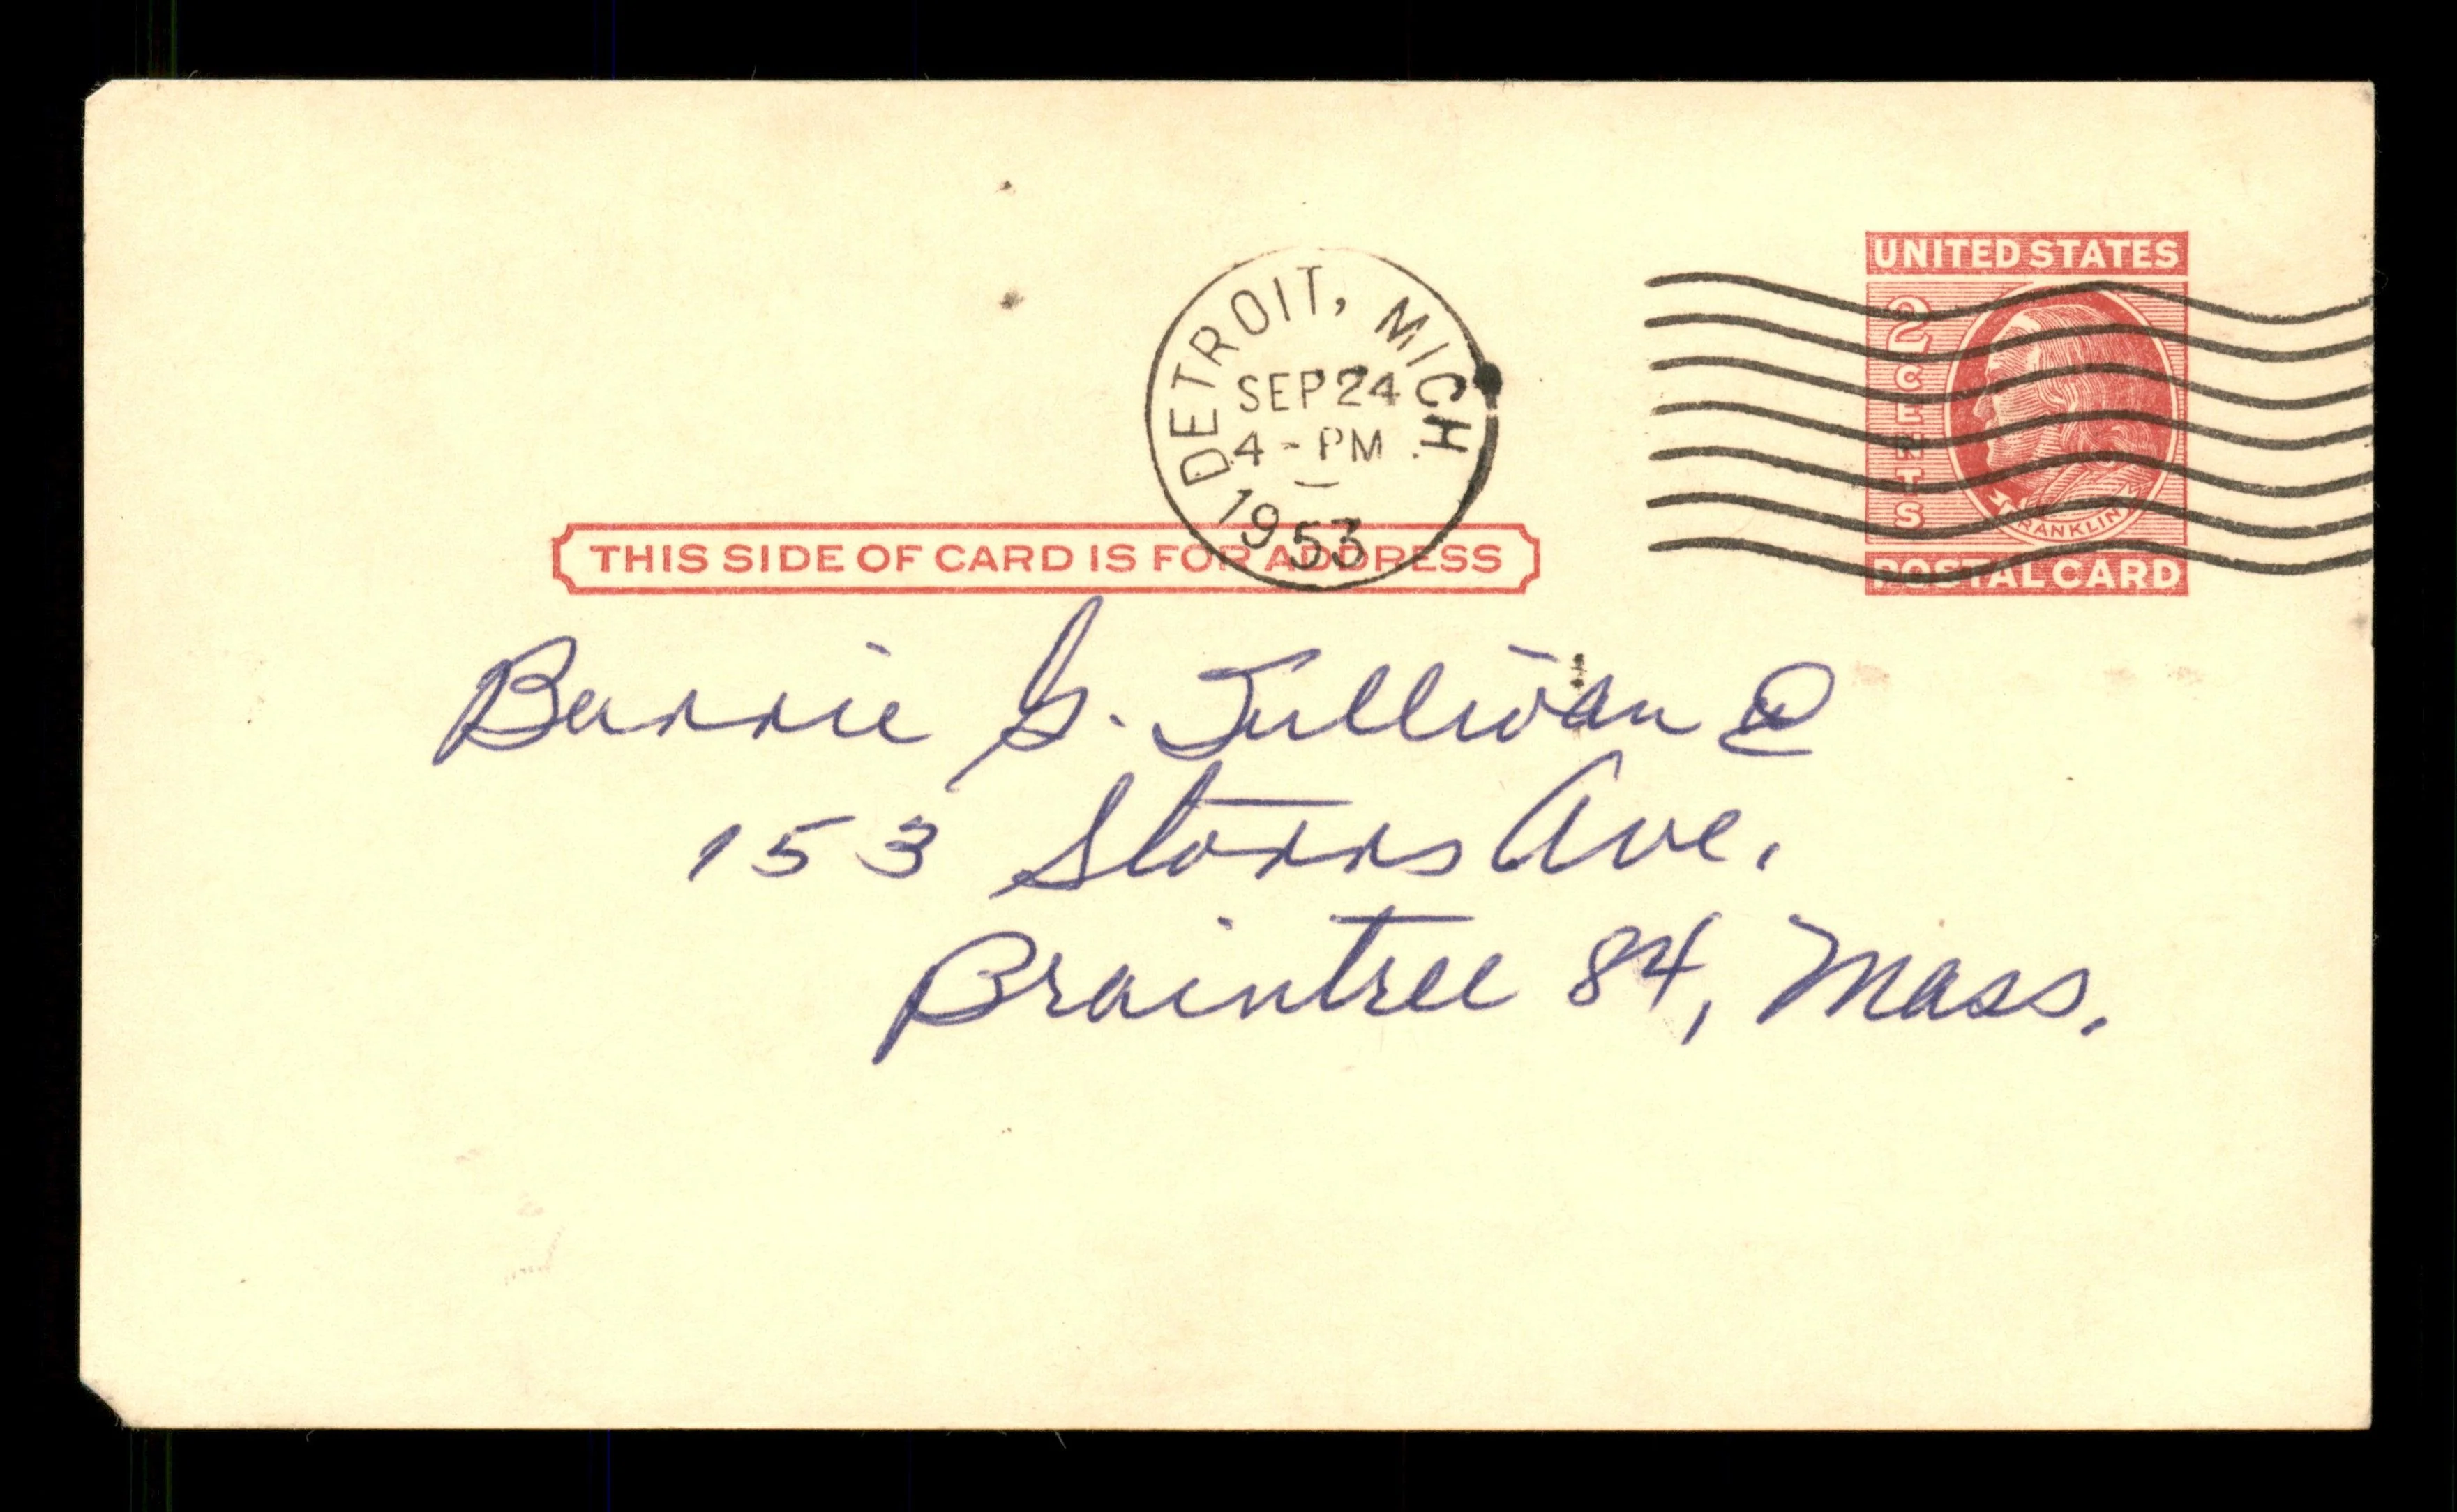 UNITED STATES
2 CENTS
FRANKLIN
POSTAL CARD
DETROIT, MICH.
SEP 24
4 - PM
1953
THIS SIDE OF CARD IS FOR ADDRESS
Barrie G. Sullivan
153 Storrs Ave.
Braintree 84, Mass.